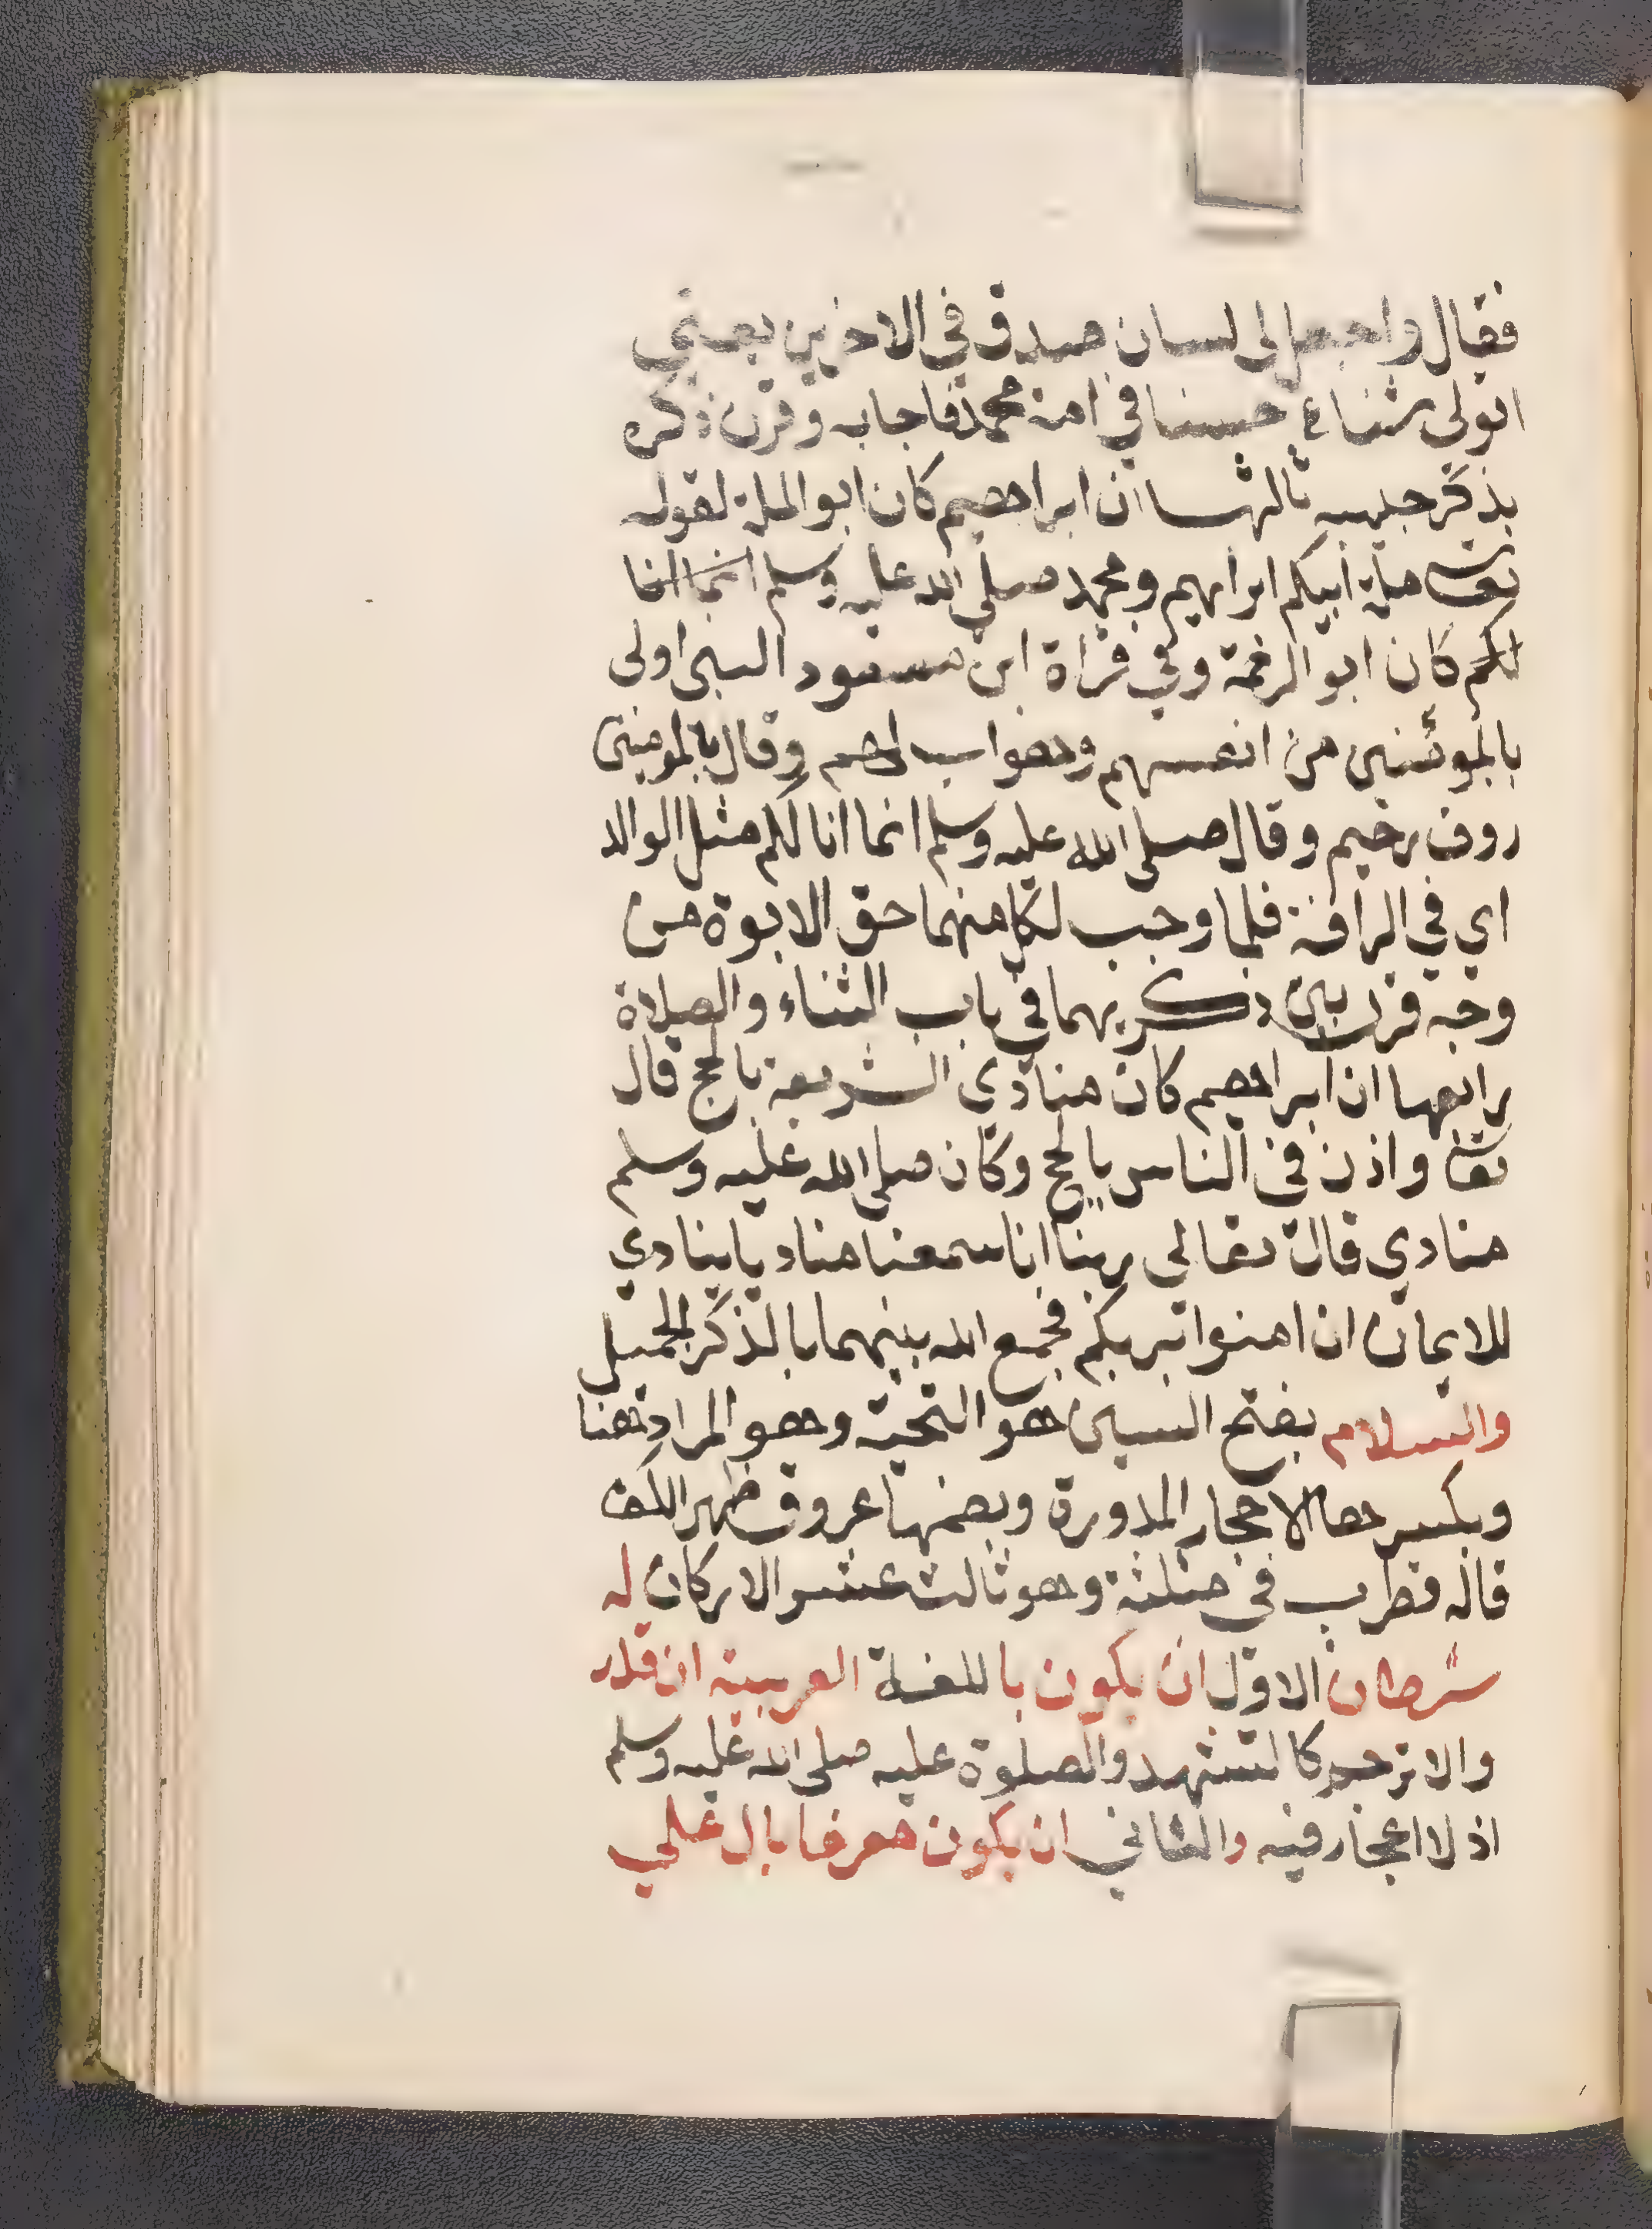 فقال واجعل لى لسان صدق في الاخرين يعني
اتولى ثناء حسنا في امة محمد فاجابه وقرن ذكره
بذكر حبيبه ثالثها ان ابراهيم كان ابو الملة لقوله
تعالى ملة ابيكم ابراهيم ومحمد صلى الله عليه وسلم انما انا
لكم كان ابو الرحمة وفي قراة ابن مسعود النبى اولى
بالموئنين من انفسهم وهو اب لهم وقال بالمومنين
روف رحيم وقال صلى الله عليه وسلم انما انا لكم مثل الوالد
اي في الرافة فلما وجب لكل منهما حق الابوة من
وجه قرن بين ذكريهما في باب الثناء والصلاة
رابعها ان ابراهيم كان منادي الشريعة بالحج قال
تعالى واذن في الناس بالحج وكان صلى الله عليه وسلم
منادي قال تعالى ربنا اننا سمعنا مناديا ينادي
للايمان ان امنوا بربكم فجمع الله بينهما بالذكر الجميل
والسلام بفتح السين هو التحية وهو المراد هنا
وبكسرها الاحجار المدورة وبضمها عروق ظهر الكف
قاله قطرب في مثلثة وهو ثالث عشر الاركان له
شرطان الاول ان يكون باللغة العربية ان قدر
والا ترجم كالتشهد والصلوة عليه صلى الله عليه وسلم
اذ لا اعجاز فيه والثاني ان يكون معرفا بال على